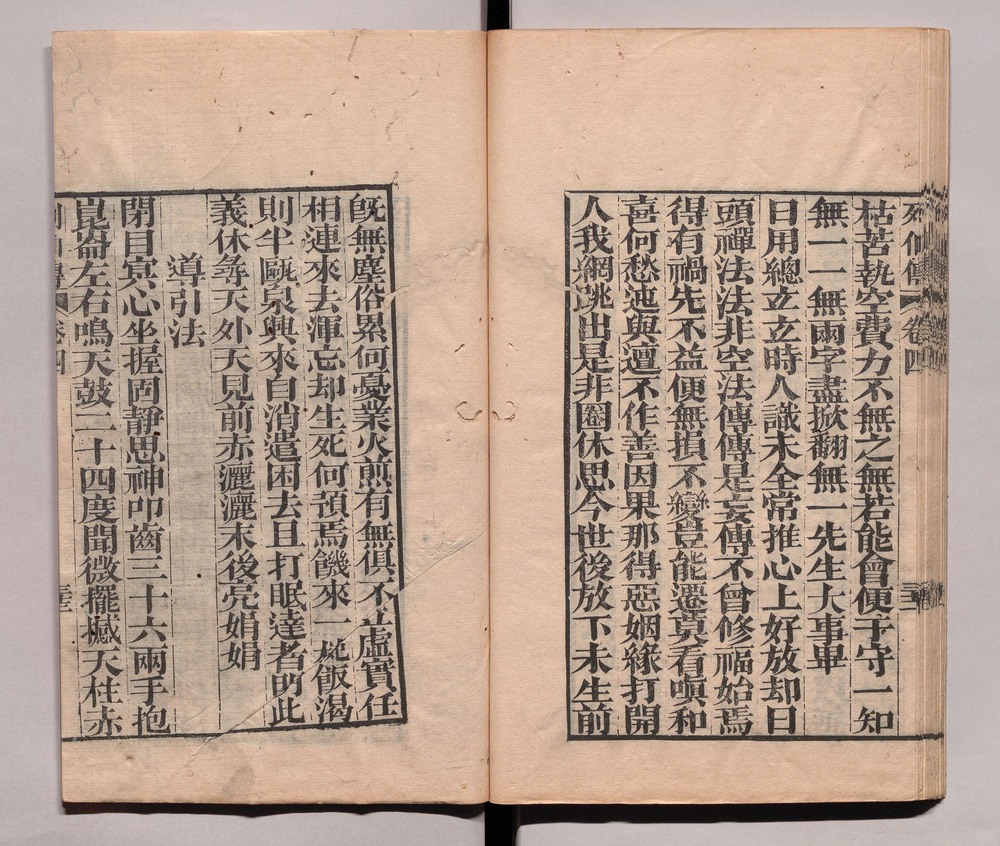 列仙傳 卷四
枯苦執空費力不無之無若能會便于守一知
無一一無兩字盡掀翻無一先生大事畢
日用總立立時人識未全常推心上好放却日
頭禪法法非空法傳傳是妄傳不會修福始焉
得有禍先不益便無損不變豈能遷莫看嗔和
喜何愁迍與邅不作善因果那得惡姻緣打開
人我網跳出是非圈休思今世後放下未生前
旣無塵俗累何憂業火煎有無俱不立虛實任
相連來去渾忘却生死何預焉饑來一碗飯渴
則半甌泉興來自消遣困去且打眠達者明此
義休尋天外天見前赤灑灑末後亮娟娟
導引法
閉目冥心坐握固靜思神叩齒三十六兩手抱
崑崙左右鳴天鼓二十四度聞微擺撼天柱赤
列仙傳 卷四